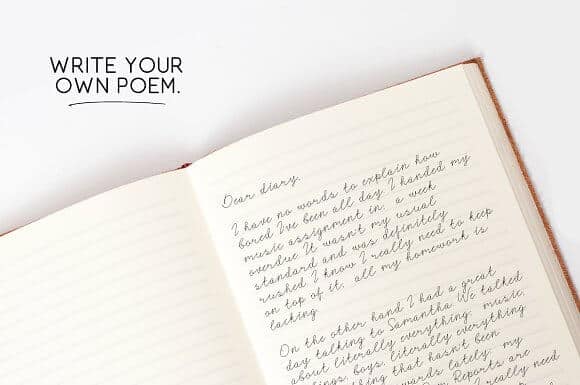 WRITE YOUR
OWN POEM.
Dear diary,
I have no words to explain how
bored I've been all day. I handed my
music assignment in, a week
overdue. It wasn't my usual
standard and was definitely
rushed. I know I really need to keep
on top of it, all my homework is
lacking.
On the other hand I had a great
day talking to Samantha. We talked
about literally everything: music,
boys, literally everything
thing that hasn't been
wards lately; my
Reports are
I really need